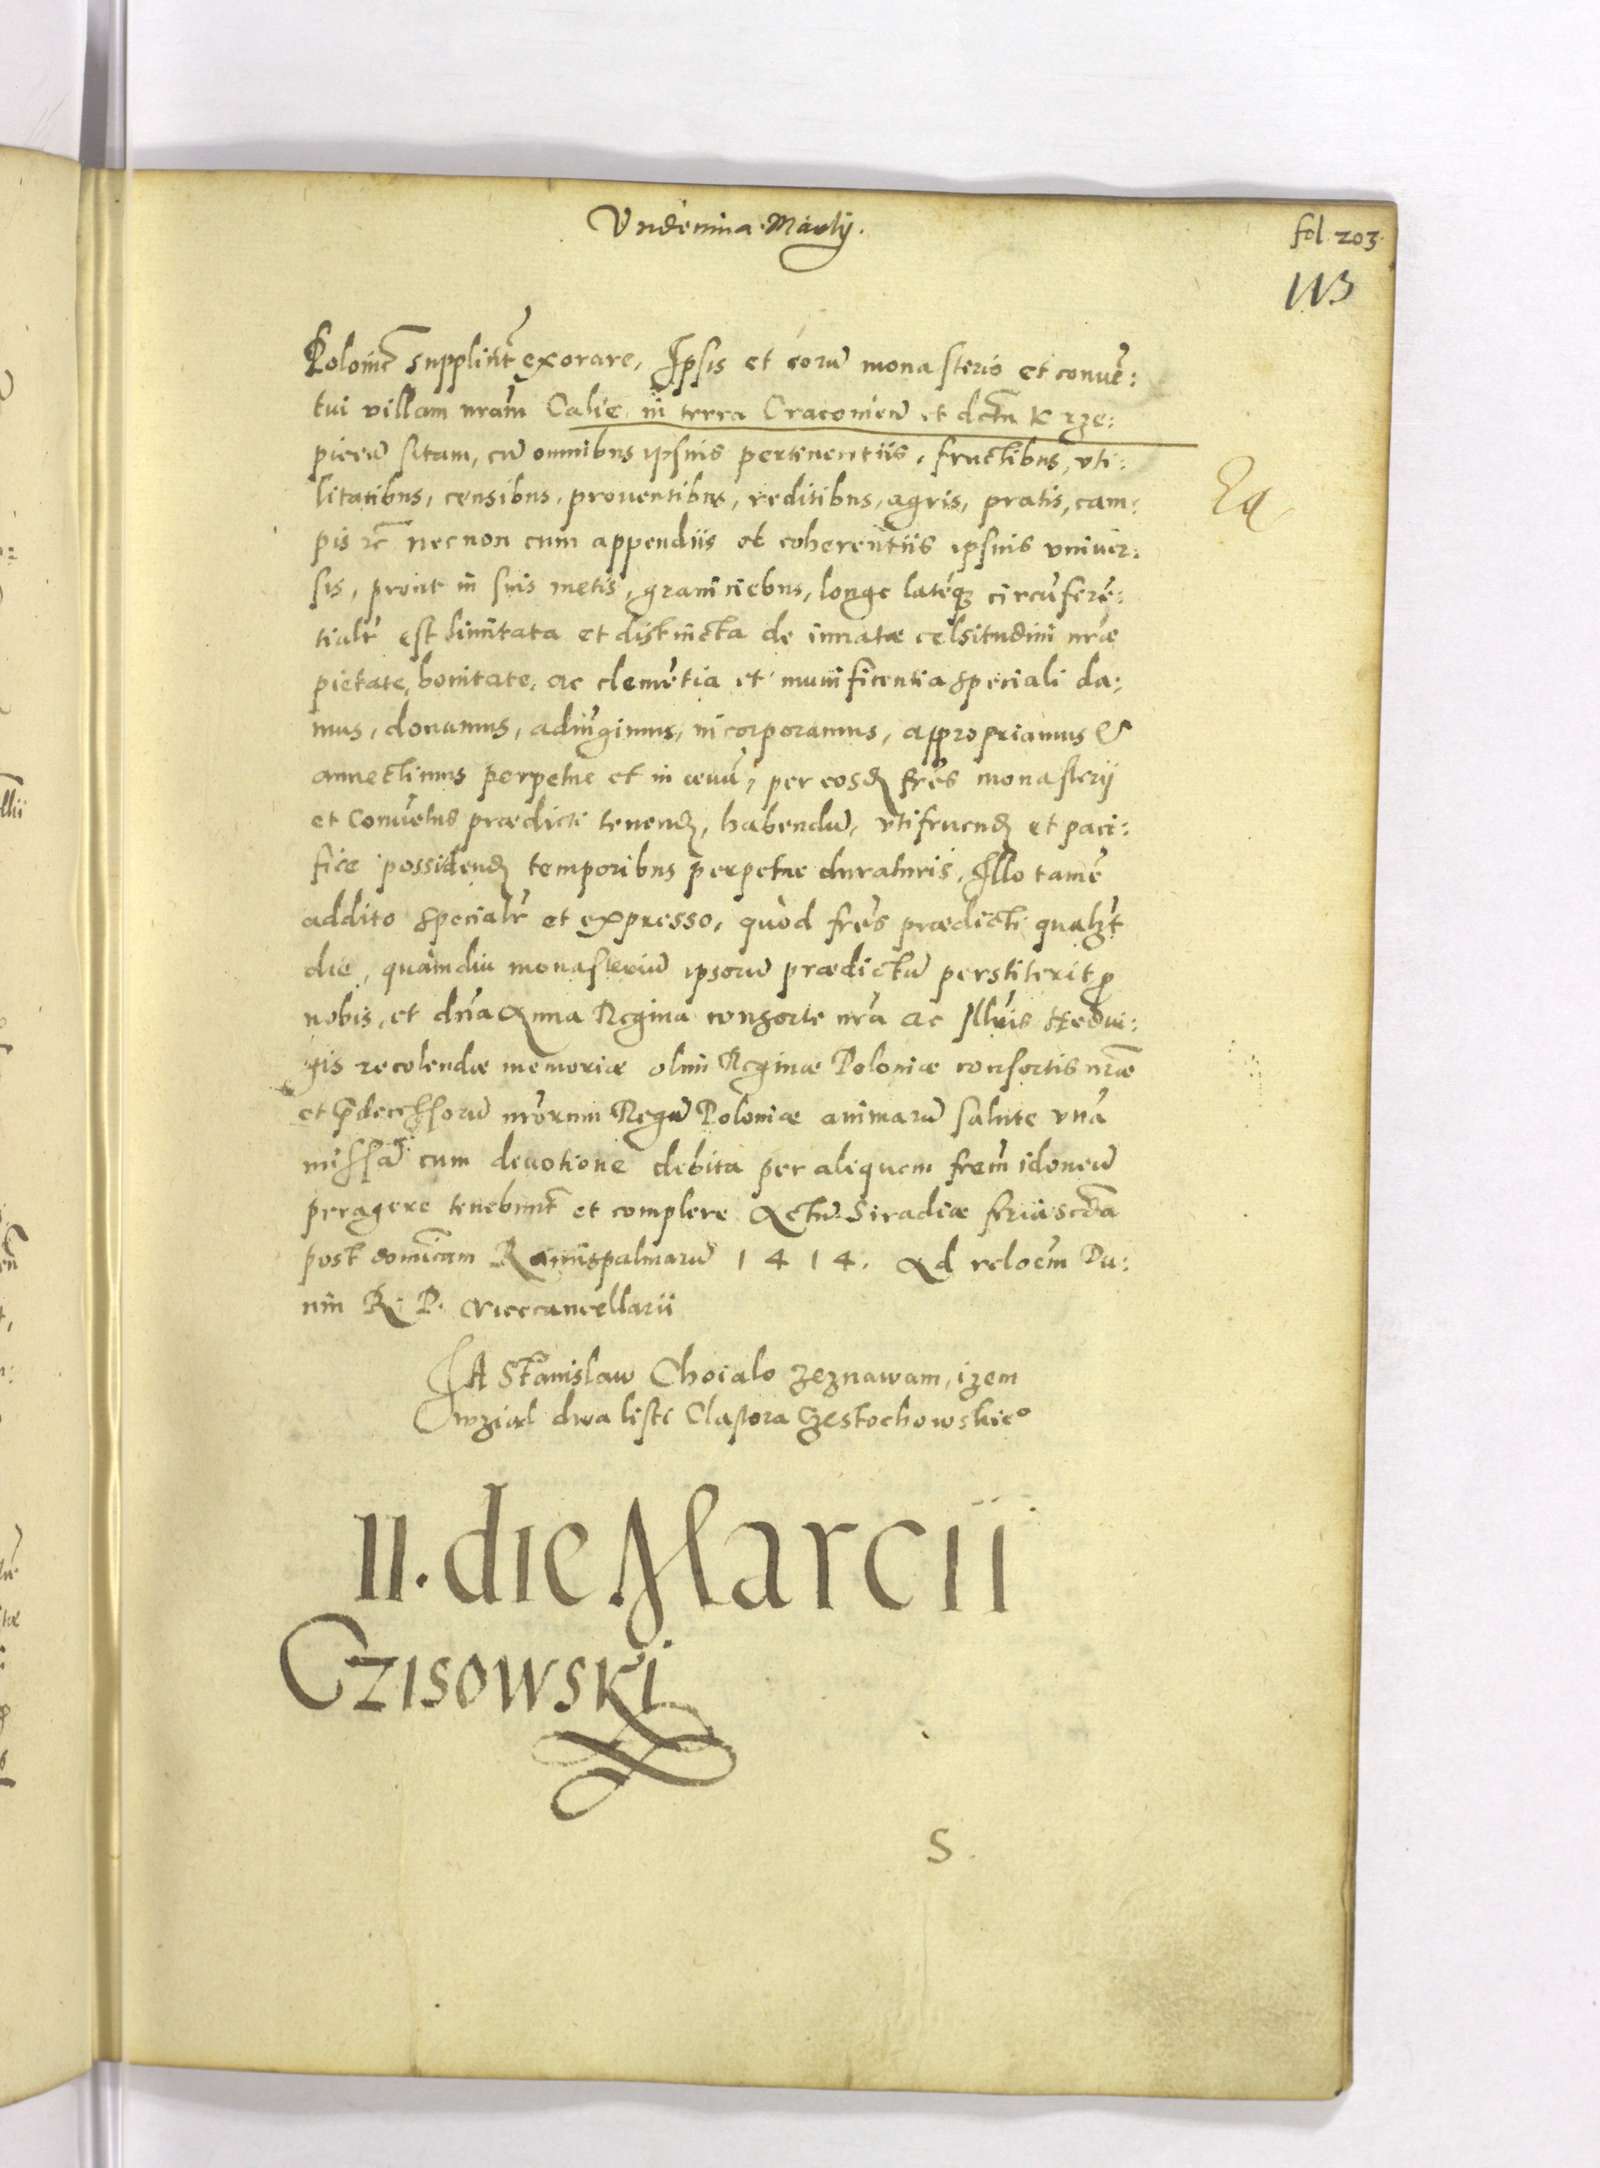 Undecima Marty.
fol 203
113
Polonie supplicitr exorare, Ipsis et eorũ monasterio et conuẽ:
tui villam nrãm Calie in terra Cracouieñ et dctu Krze:
picen̄ sitam, cũ omnibus ipsius pertinentiis, fructibus, vti:
litatibus, censibus, prouentibus, reditibus, agris, pratis, cam:
pis zc̃ necnon cum appendiis et coherentiis ipsius vniuer:
sis, prout in suis metis, graniciebus, longe lateq̃ circũferẽ:
tialr̃ est limitata et distincta de innatæ celsitudini nr̃æ
pietate, bonitate, ac clemẽtia et munificentia speciali da:
mus, donamus, adiũgimus, incorporamus, appropriamus &
annectimus perpetue et in æuũ, per eosd̃ fr̃es monasterij
et Conuẽtus prædicti tenend̃, habendũ, vtifruend̃ et paci:
fice possidend̃ temporibus perpetue duraturis, Illo tamẽ
addito specialr̃ et expresso, quòd fr̃es prædicti qualꝫt
die, quàmdiu monasteriũ ipsorũ prædictũ perstiterit p
nobis, et dñã Anna Regina consorte nr̃a ac Illr̃is Hedui:
gis recolendæ memoriæ olim Reginæ Poloniæ consortis nr̃æ
et p̃decessorũ nr̃orum Regũ Poloniæ animarũ salute vnã
missã cum deuotione debita per aliquem fr̃em idoneũ
peragere tenebunt̃ et complere Actũ Siradiæ feria scd̃a
post dominicam Ramispalmarũ 1414. Ad reloẽm Du:
nin R. P. vicecancellarii
JA Stanislaw Choialo zeznawam, izem
wział dwa listi Clastora Częstochowskieᵒ
11. die Marcii
Czisowski
S.